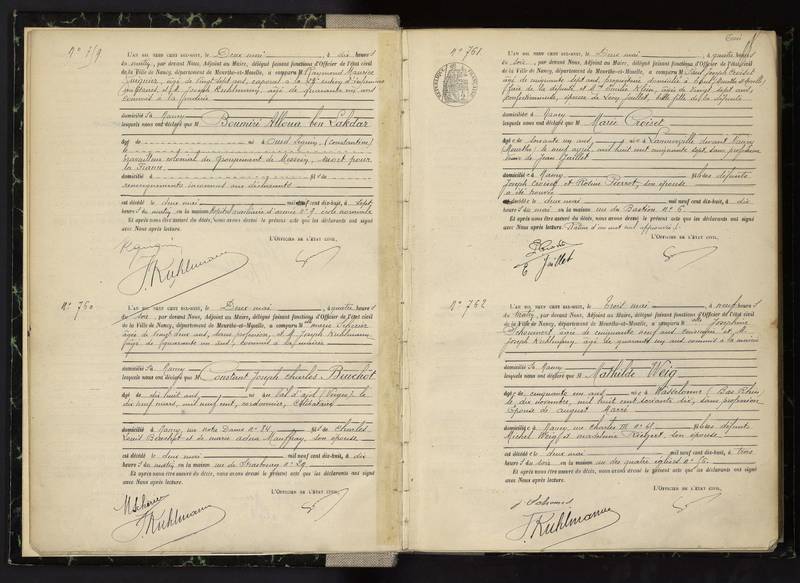 N° 759
L'AN MIL NEUF CENT DIX-HUIT, le Deux mai, à dix heures
du matin, par devant Nous, Adjoint au Maire, délégué faisant fonctions d'Officier de l'état civil
de la Ville de Nancy, département de Meurthe-et-Moselle, a comparu M Raymond Maurice
âgé de vingt sept ans, caporal à la section d'infirmiers
Joseph Kuhlmann, âgé de quarante un ans
commis à la mairie
domicilié à Nancy
lesquels nous ont déclaré que M Boumizi Alloua ben Lakdar
âgé de né à Oued Seguin (Constantine)
le
travailleur colonial du groupement de Messein, mort pour
la France
domicilié à fils de
renseignements inconnus aux déclarants
est décédé le deux mai mil neuf cent dix-huit, à sept
heures du matin, en la maison Hôpital auxiliaire d'armée n° 9, école normale
Et après nous être assuré du décès, nous avons dressé le présent acte que les déclarants ont signé
avec Nous après lecture.
L'OFFICIER DE L'ÉTAT CIVIL,
J. Kuhlmann
N° 760
L'AN MIL NEUF CENT DIX-HUIT, le Deux mai, à quatre heures
du soir, par devant Nous, Adjoint au Maire, délégué faisant fonctions d'Officier de l'état civil
de la Ville de Nancy, département de Meurthe-et-Moselle, a comparu Mme Marie Scherer
âgée de vingt deux ans, sans profession, et M Joseph Kuhlmann
âgé de quarante un ans, commis à la mairie
domicilié à Nancy
lesquels nous ont déclaré que M Constant Joseph Charles Beuchot
âgé de dix huit ans, né au Val d'Ajol (Vosges) le
dix neuf mars, mil neuf cent, cordonnier, célibataire
domicilié à Nancy, rue Notre Dame n° 84 fils de Charles
Louis Beuchot et de Marie Adna Mauffray, son épouse
est décédé le deux mai mil neuf cent dix-huit, à dix
heures du matin, en la maison rue de Strasbourg n° 29
Et après nous être assuré du décès, nous avons dressé le présent acte que les déclarants ont signé
avec Nous après lecture.
L'OFFICIER DE L'ÉTAT CIVIL,
M Scherer
J. Kuhlmann
N° 761
L'AN MIL NEUF CENT DIX-HUIT, le Deux mai, à quatre heures
du soir, par devant Nous, Adjoint au Maire, délégué faisant fonctions d'Officier de l'état civil
de la Ville de Nancy, département de Meurthe-et-Moselle, a comparu M Paul Joseph Croiset
âgé de cinquante sept ans, propriétaire domicilié à (Meurthe et Moselle)
frère de la défunte et Emilie Klein, âgée de vingt sept ans,
confectionneuse, épouse de Léon Jaillet, belle fille de la défunte
domiciliée à Nancy
lesquels nous ont déclaré que M Marie Croiset
âgée de soixante un ans, née à Lanneuveville devant Nancy
(Meurthe) le neuf avril mil huit cent cinquante sept, sans profession
veuve de Jean Jaillet
domiciliée à Nancy fille des défunts
Joseph Croiset et Rosine Perrot, son épouse
a été trouvée
est décédée le deux mai mil neuf cent dix-huit, à dix
heures du matin, en la maison rue du Bastion n° 6
Et après nous être assuré du décès, nous avons dressé le présent acte que les déclarants ont signé
avec Nous après lecture.
L'OFFICIER DE L'ÉTAT CIVIL,
E. Jaillet
N° 762
L'AN MIL NEUF CENT DIX-HUIT, le Trois mai, à neuf heures
du matin, par devant Nous, Adjoint au Maire, délégué faisant fonctions d'Officier de l'état civil
de la Ville de Nancy, département de Meurthe-et-Moselle, a comparu Mme Joséphine
âgée de cinquante neuf ans, et M.
Joseph Kuhlmann, âgé de quarante un ans, commis à la mairie
domicilié à Nancy
lesquels nous ont déclaré que M Mathilde Weig
âgée de cinquante un ans née à Wasselonne (Bas Rhin)
le dix novembre, mil huit cent soixante six, sans profession
épouse de August Marzi
domiciliée à Nancy, rue Charles III n° 61 fille des défunts
Michel Weig et Madeleine son épouse
est décédée le deux mai mil neuf cent dix-huit, à trois
heures du soir, en la maison rue des quatre églises n°
Et après nous être assuré du décès, nous avons dressé le présent acte que les déclarants ont signé
avec Nous après lecture.
L'OFFICIER DE L'ÉTAT CIVIL,
J. Kuhlmann